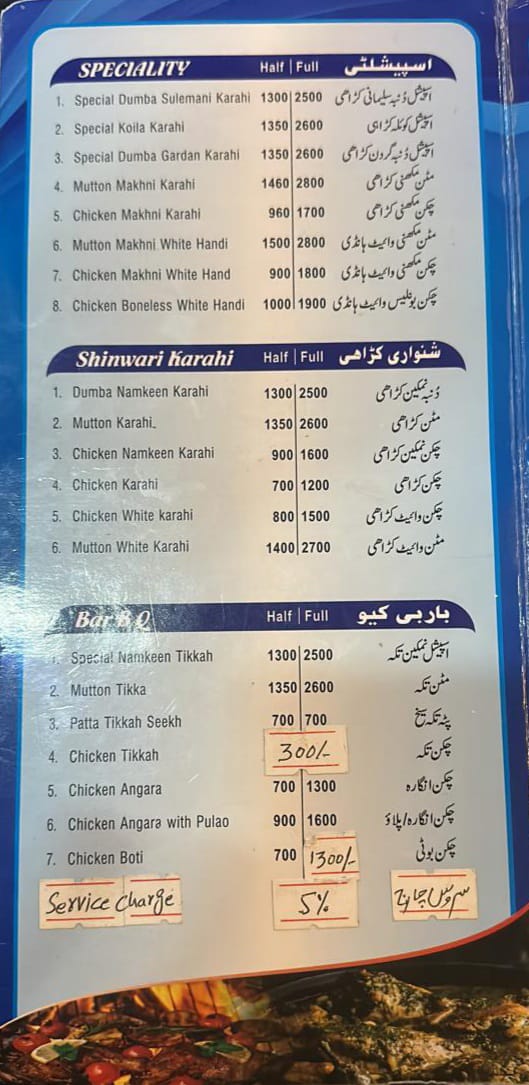 SPECIALITY Half | Full اسپیشلٹی
1. Special Dumba Sulemani Karahi 1300 2500 اسپیشل دُنبہ سلیمانی کڑاھی
2. Special Koila Karahi 1350 2600 اسپیشل کوئلہ کڑاہی
3. Special Dumba Gardan Karahi 1350 2600 اسپیشل دُنبہ گردن کڑاھی
4. Mutton Makhni Karahi 1460 2800 مٹن مکھنی کڑاھی
5. Chicken Makhni Karahi 960 1700 چکن مکھنی کڑاھی
6. Mutton Makhni White Handi 1500 2800 مٹن مکھنی وائیٹ ہانڈی
7. Chicken Makhni White Hand 900 1800 چکن مکھنی وائیٹ ہانڈی
8. Chicken Boneless White Handi 1000 1900 چکن بونلیس وائیٹ ہانڈی
Shinwari Karahi Half | Full شنواری کڑاھی
1. Dumba Namkeen Karahi 1300 2500 دُنبہ نمکین کڑاھی
2. Mutton Karahi. 1350 2600 مٹن کڑاھی
3. Chicken Namkeen Karahi 900 1600 چکن نمکین کڑاھی
4. Chicken Karahi 700 1200 چکن کڑاھی
5. Chicken White karahi 800 1500 چکن وائیٹ کڑاھی
6. Mutton White Karahi 1400 2700 مٹن وائیٹ کڑاھی
Bar B.Q Half | Full باربی کیو
1. Special Namkeen Tikkah 1300 2500 اسپیشل نمکین تکہ
2. Mutton Tikka 1350 2600 مٹن تکہ
3. Patta Tikkah Seekh 700 700 پٹہ تکہ سیخ
4. Chicken Tikkah 300/- چکن تکہ
5. Chicken Angara 700 1300 چکن انگارہ
6. Chicken Angara with Pulao 900 1600 چکن انگارہ/پلاؤ
7. Chicken Boti 700 1300/- چکن بوٹی
Service Charge 5% سروس چارج